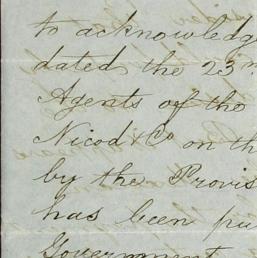 to acknowledge
dated the 23
Agents of the
Nicod & Co on th
by the Provis
has been pu
Government